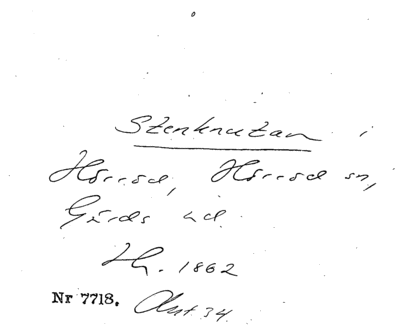 Stenknutan i
Hörröd, Hörröd sn,
Gärds hd.
H. 1862
Nr 7718. Avst. 34.